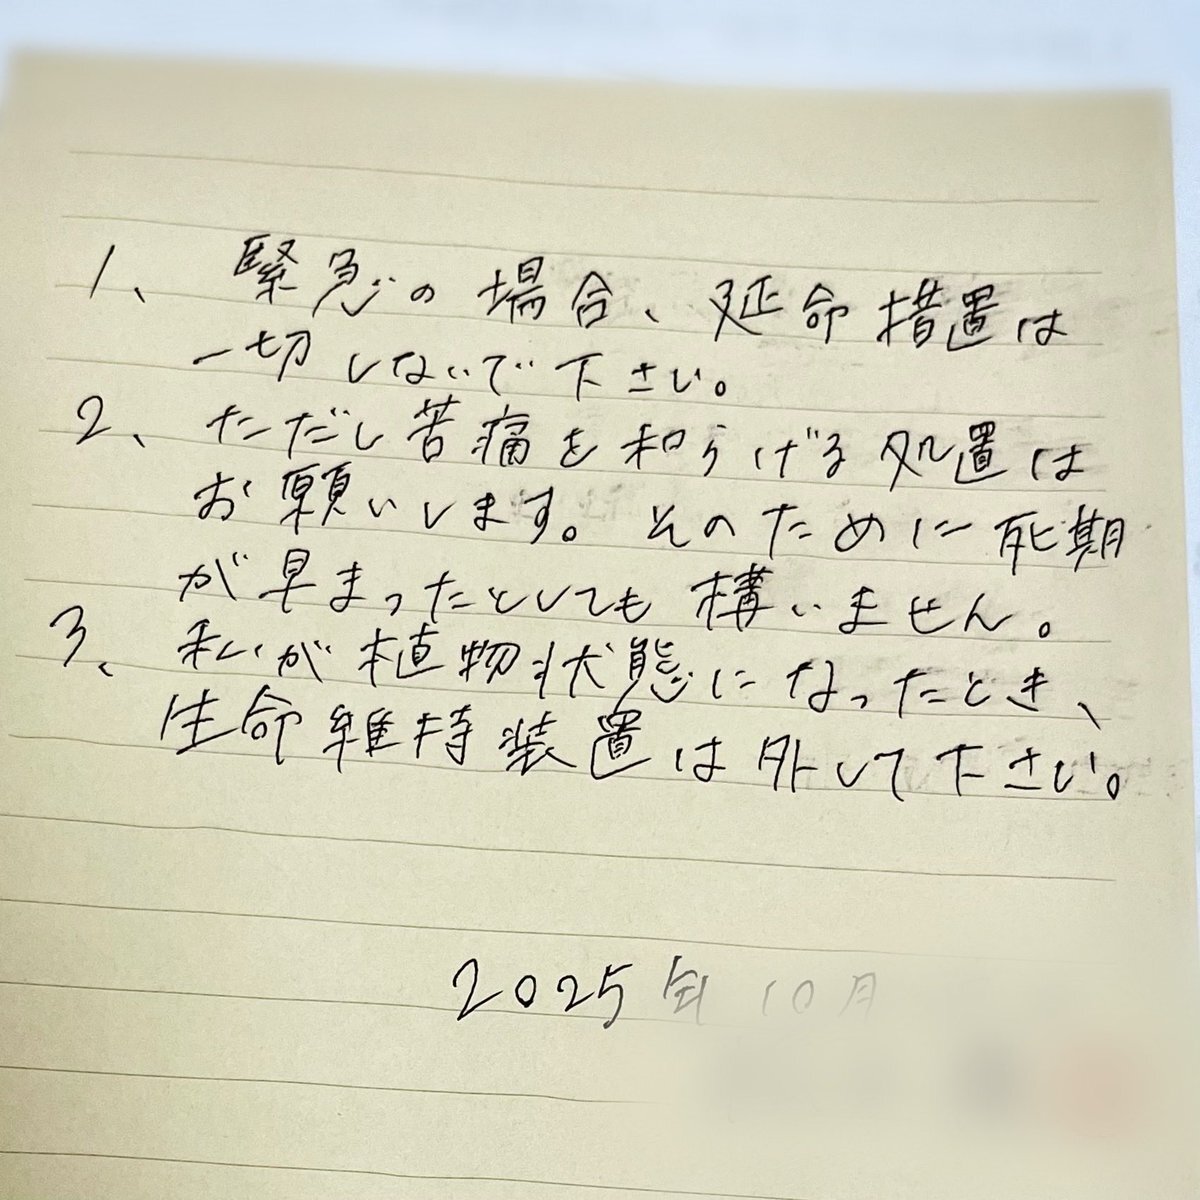 1、緊急の場合、延命措置は
一切しないで下さい。
2、ただし苦痛を和らげる処置は
お願いします。そのために死期
が早まったとしても構いません。
3、私が植物状態になったとき、
生命維持装置は外して下さい。
2025年10月